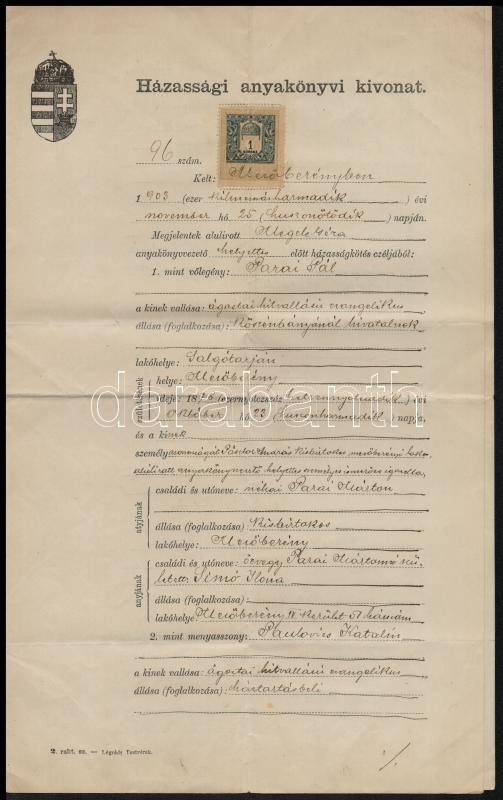 Házassági anyakönyvi kivonat.
1
96 szám.
Kelt: Mezőberényben
1903 (ezer kilencszázharmadik) évi
november hó 25 (huszonötödik) napján.
Megjelentek alulirott Megele Géza
anyakönyvvezető helyettes előtt házasságkötés czéljából:
1. mint vőlegény: Parai Pál
a kinek vallása: ágostai hitvallású evangelikus
állása (foglalkozása): Kőszénbányánál hivatalnok
lakóhelye: Salgótarján
születésének
helye: Mezőberény
ideje: 18 (ezernyolczszáz) évi
október hó 23 (huszonharmadik) napja
és a kinek
személyazonosságát András kisbirtokos, mezőberényi
alulirott anyakönyvvezető helyettes személyes ismerőse igazolta,
atyjának
családi és utóneve: néhai Parai Márton
állása (foglalkozása) Kisbirtokos
lakóhelye: Mezőberény
anyjának
családi és utóneve: özvegy Parai Mártonné szü-
letett Simó Ilona
állása (foglalkozása):
lakóhelye Mezőberény IV. kerület 51 házszám
2. mint menyasszony: Paulovics Katalin
a kinek vallása: ágostai hitvallású evangelikus
állása (foglalkozása): háztartásbeli
2. rakt. sz. — Légrády Testvérek.
./.
darabanth